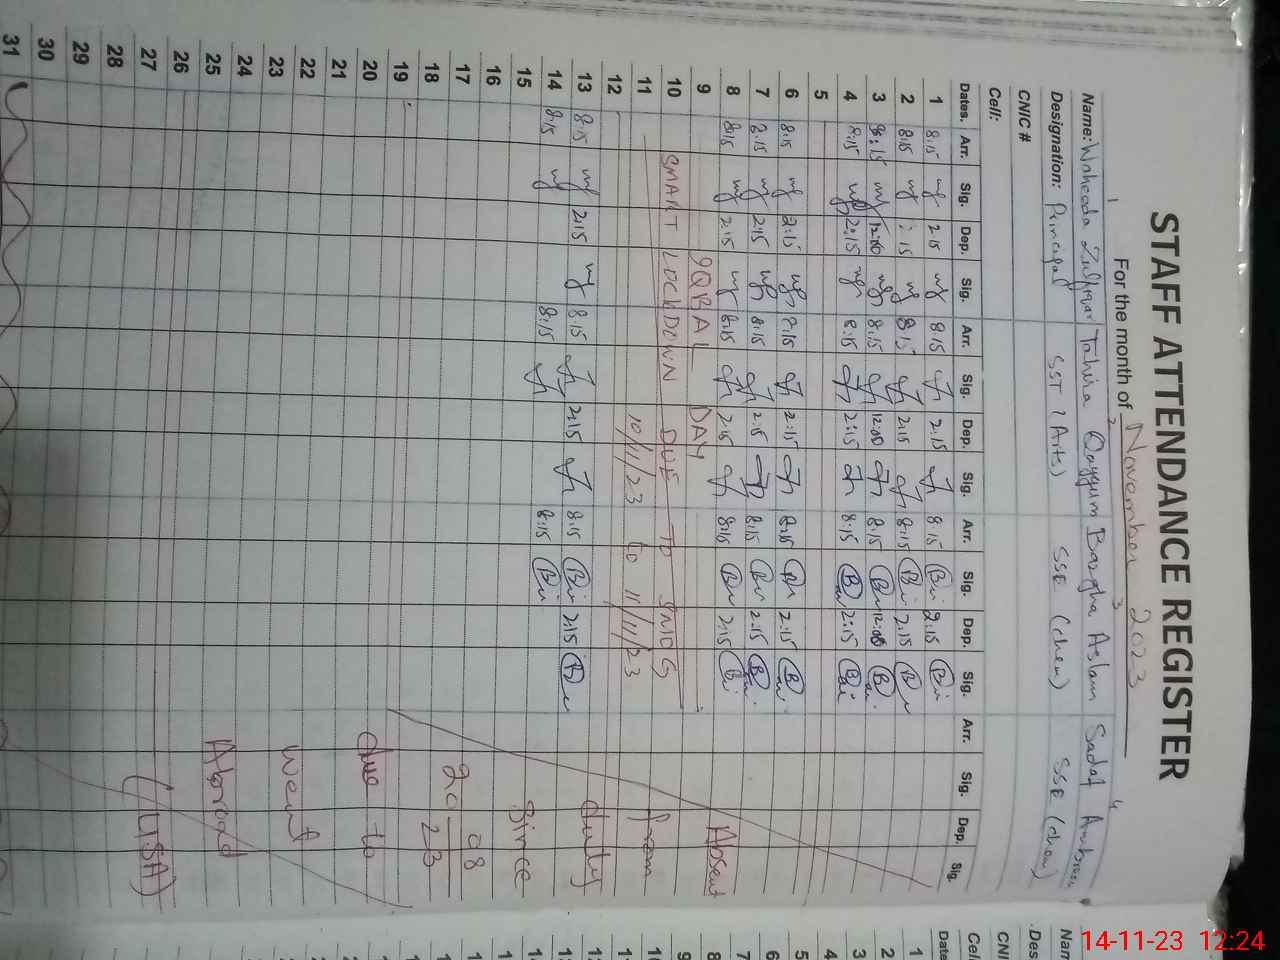 STAFF ATTENDANCE REGISTER
For the month of November 2023
1 2 3 4
Name: Waheeda Zulfiqar Tahira Qayyum Bazgha Aslam Sadaf Ambreen
Designation: Principal SST (Arts) SSE (chem) SSE (chem)
CNIC #
Cell:
Dates. Arr. Sig. Dep. Sig. Arr. Sig. Dep. Sig. Arr. Sig. Dep. Sig. Arr. Sig. Dep. Sig.
1 8:15 2:15 8:15 2:15 8:15 2:15
2 8:15 2:15 8:15 2:15 8:15 2:15
3 8:15 12:00 8:15 12:00 8:15 12:00
4 8:15 2:15 8:15 2:15 8:15 2:15
5
6 8:15 2:15 8:15 2:15 8:15 2:15
7 8:15 2:15 8:15 2:15 8:15 2:15
8 8:15 2:15 8:15 2:15 8:15 2:15 Absent
9 IQBAL DAY
10 SMART LOCKDOWN DUE TO SMOG from
11 10/11/23 to 11/11/23
12
13 8:15 2:15 8:15 2:15 8:15 2:15 duty
14 8:15 8:15 8:15
15 Since
16
17 08
18 20 23
19
20 due to
21
22
23 went
24
25 Abroad
26
27 (USA)
28
29
30
31
Dates
1
2
3
4
5
6
7
8
9
14-11-23 12:24